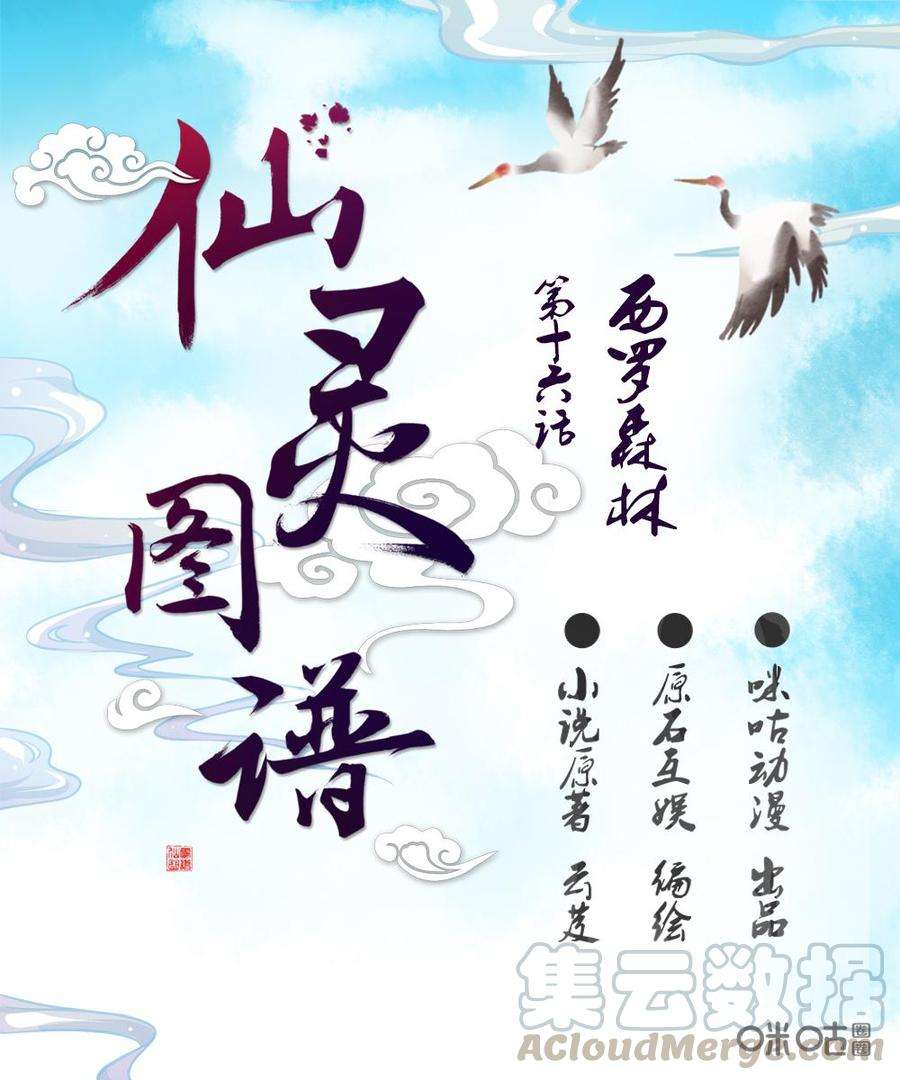 仙灵图谱
第十六话
西罗森林
小说原著 云芨
原石互娱 编绘
咪咕动漫 出品
集云数据
ACloudMerge.com
咪咕圈圈